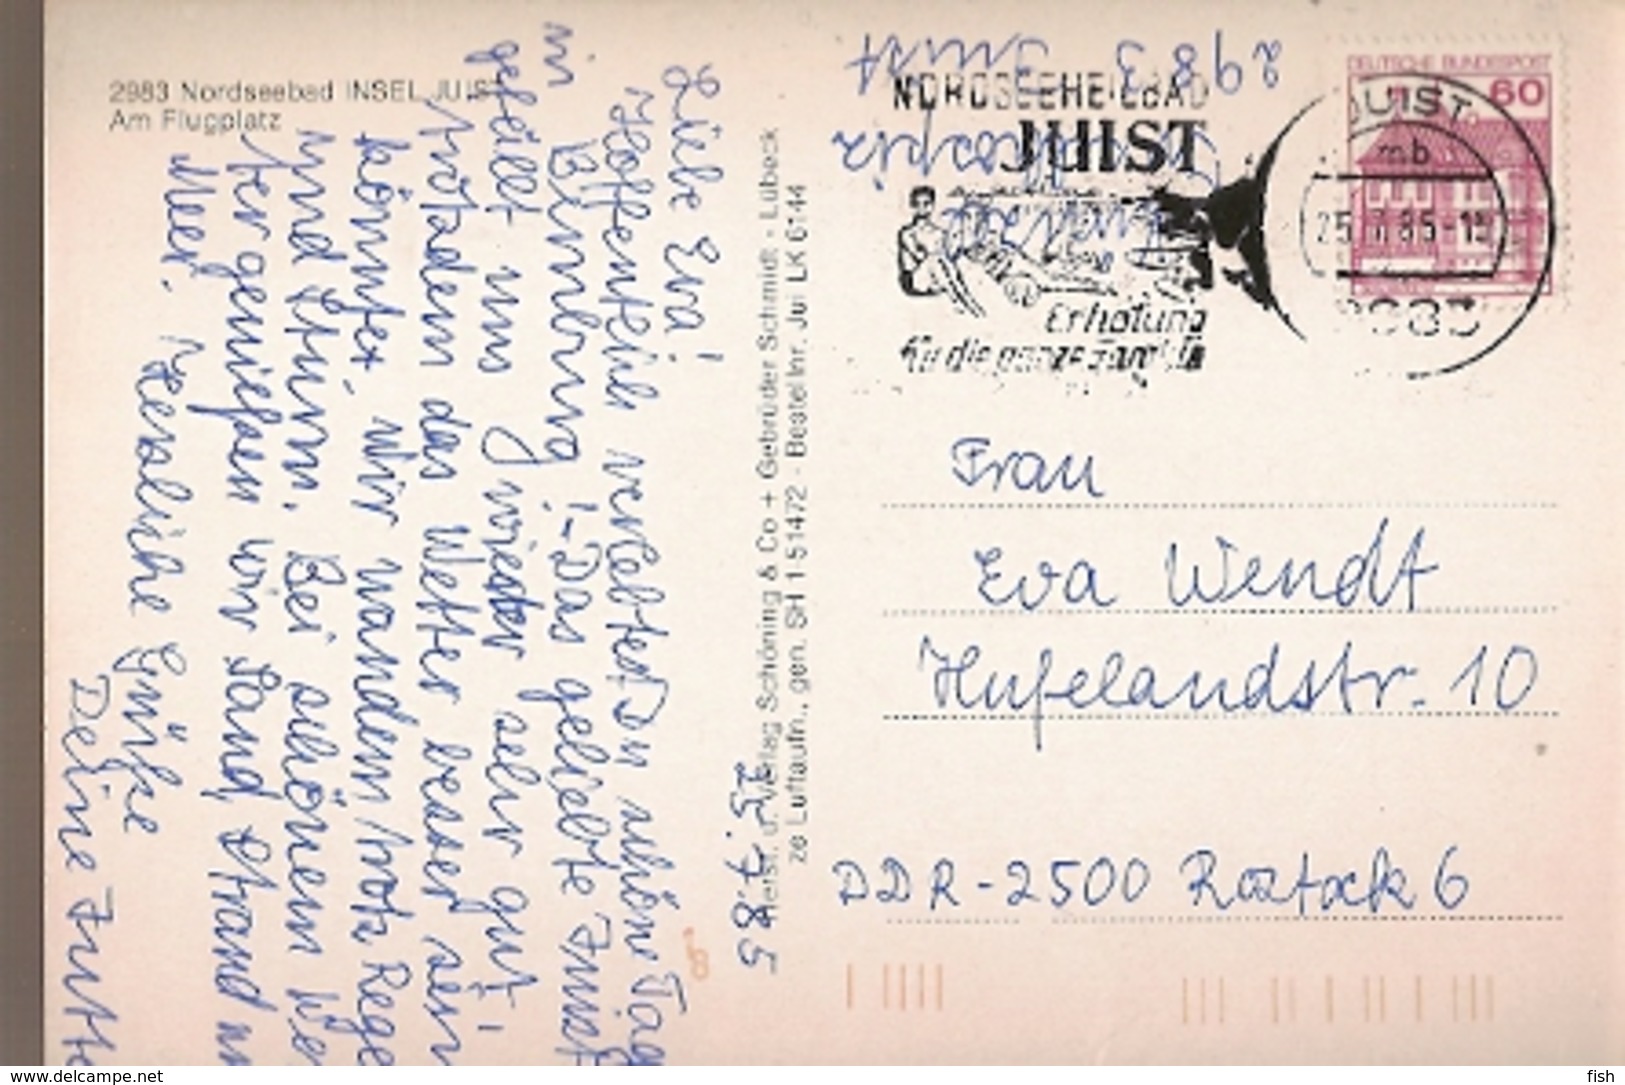 2983 Nordseebad INSEL JUIST
Am Flugplatz
15.7.85
Liebe Eva!
Hoffentlich verlebtest Du schöne Tag
in Binnburg! - Das geliebte Juist
gefällt uns wieder sehr gut,
trotzdem das Wetter besser sein
könnte, wir wandern trotz Rege
und Sturm. Bei schönem We
ter genießen wir Sand, Strand u
Meer. Herzliche Grüße
Deine Jutt
Herst. u. Verlag Schöning & Co + Gebrüder Schmidt - Lübeck
ze Luftaufn., gen. SH 1-51472 - Bestellnr. Jui LK 6144
2983 Juist
NORDSEEHEILBAD
JUIST
Erholung
für die ganze Familie
DEUTSCHE BUNDESPOST
60
JUIST
mb
2983
Frau
Eva Wendt
Hufelandstr. 10
DDR-2500 Rostock 6
www.delcampe.net
fish